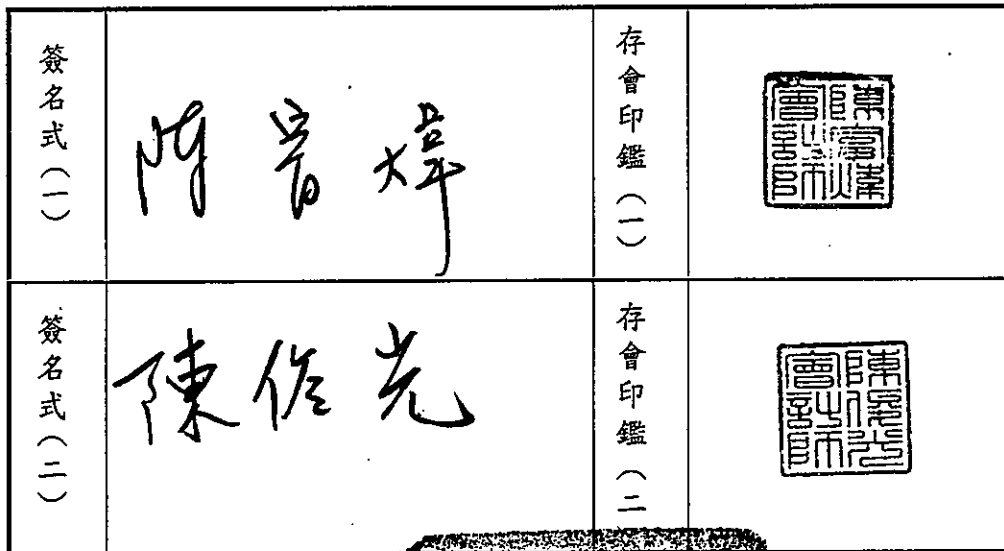 簽名式(一)
陳富煒
存會印鑑(一)
陳富煒會計師
簽名式(二)
陳俊光
存會印鑑(二
陳俊光會計師